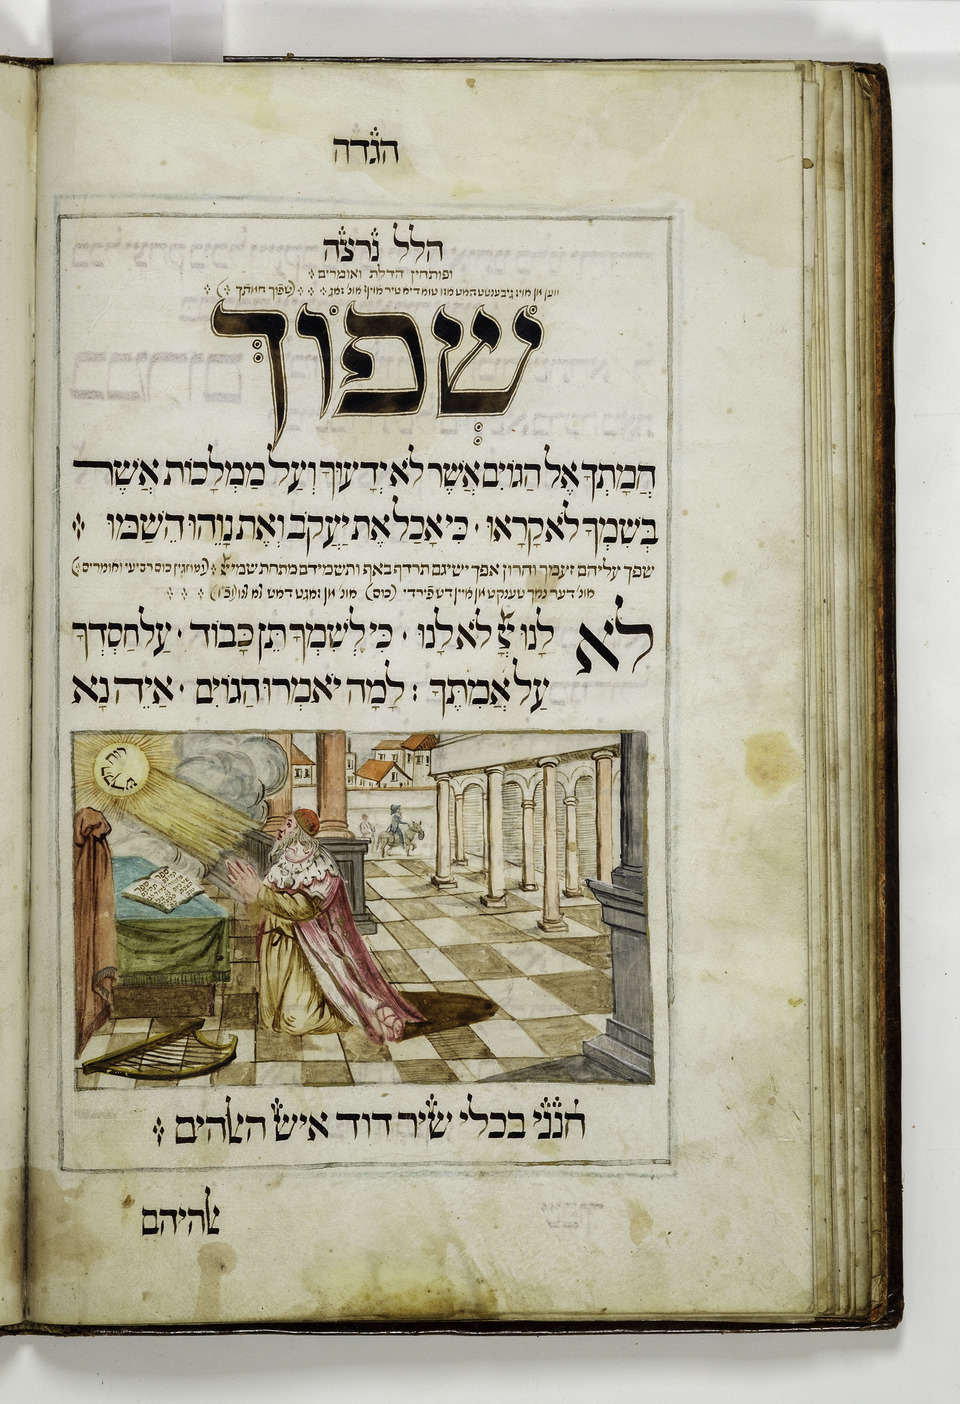 הגדה
הלל נרצה
ופותחין הדלת ואומרים
שפוך
חֲמָתְךָ אֶל הַגּוֹיִם אֲשֶׁר לֹא יְדָעוּךָ וְעַל מַמְלָכוֹת אֲשֶׁר
בְּשִׁמְךָ לֹא קָרָאוּ · כִּי אָכַל אֶת יַעֲקֹב וְאֶת נָוֵהוּ הֵשַׁמּוּ
שפך עליהם זעמך וחרון אפך ישיגם תרדף באף ותשמידם מתחת שמי יי
לֹא
לָנוּ יְיָ לֹא לָנוּ · כִּי לְשִׁמְךָ תֵּן כָּבוֹד · עַל חַסְדְּךָ
עַל אֲמִתֶּךָ : לָמָה יֹאמְרוּ הַגּוֹיִם · אַיֵּה נָא
רוח הקדש
חנני בכלי שיר דוד איש האלהים
אלהיהם